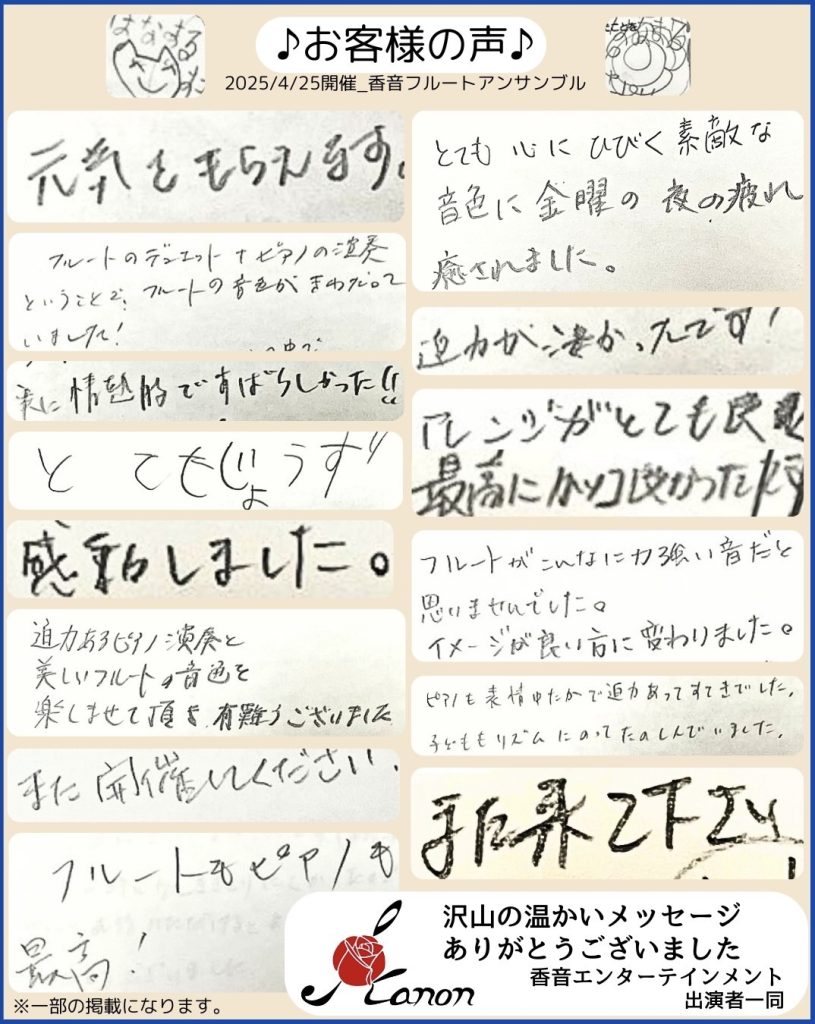 ♪お客様の声♪
2025/4/25開催_香音フルートアンサンブル
元気をもらえます。
フルートのデュエット+ピアノの演奏
ということで、フルートの音色がきわだって
いました!
実に情熱的ですばらしかった!!
とてもじょうず
感動しました。
迫力あるピアノ演奏と
美しいフルートの音色を
楽しませて頂き有難うございました
また開催してください。
フルートもピアノも
最高!
とても心にひびく素敵な
音色に金曜の夜の疲れ
癒されました。
迫力が凄かったです!
アレンジがとても良く
最高にカッコ良かったです
フルートがこんなに力強い音だと
思いませんでした。
イメージが良い方に変わりました。
ピアノも表情ゆたかで迫力あってすてきでした。
子どももリズムにのってたのしんでいました。
また来て下さい
Kanon
沢山の温かいメッセージ
ありがとうございました
香音エンターテインメント
出演者一同
※一部の掲載になります。